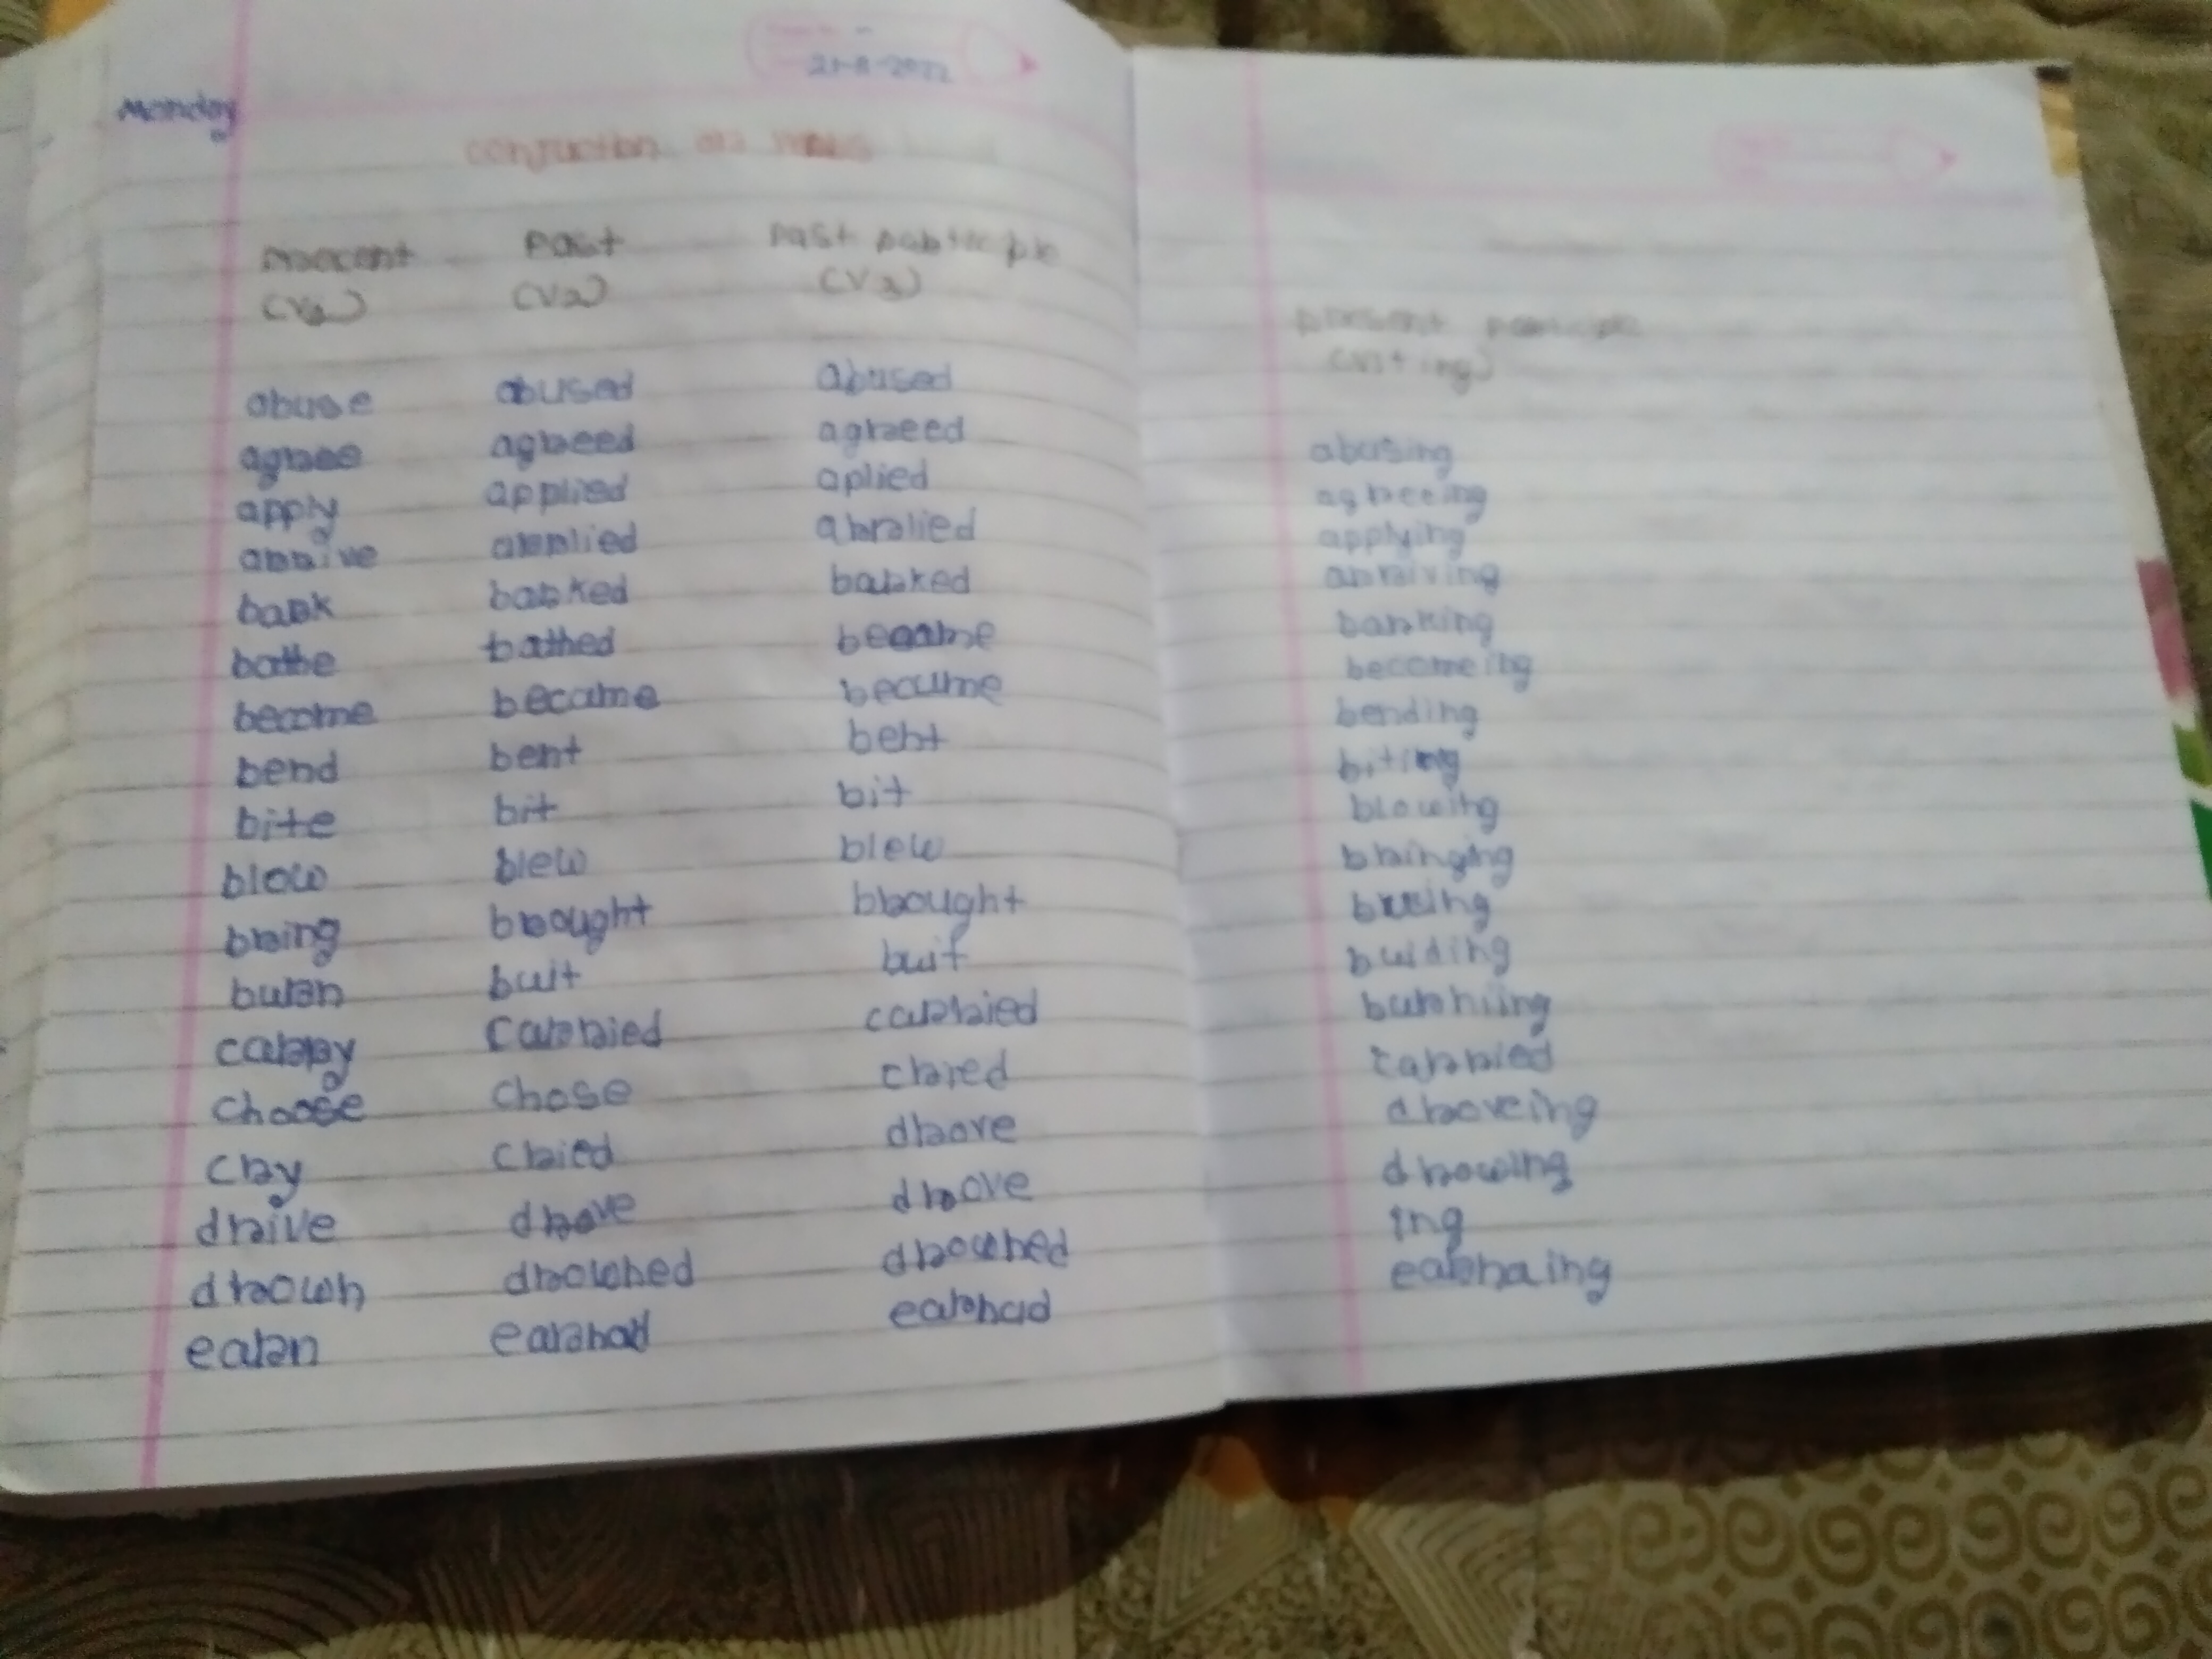 Monday
conjuction
Past Past
(V2) (V3)
abuse abused abused
agree agreed agreed
apply applied aplied
arrive arrlied arrlied
bark barked barked
bathe bathed became
become became became
bend bent bent
bite bit bit
blow blew blew
bring brought brought
burn buit buit
carry carried carried
choose chose cried
cry cried drove
drive drove drove
drown drowned drowned
earn earnad earnad
present
abusing
agreeing
applying
arriving
barking
becomeing
bending
biting
blowing
bringing
buiding
carried
droveing
drowing
ing
earnaing